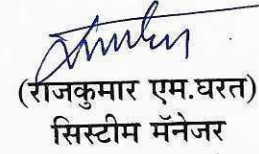 (राजकुमार एम.घरत)
सिस्टीम मॅनेजर